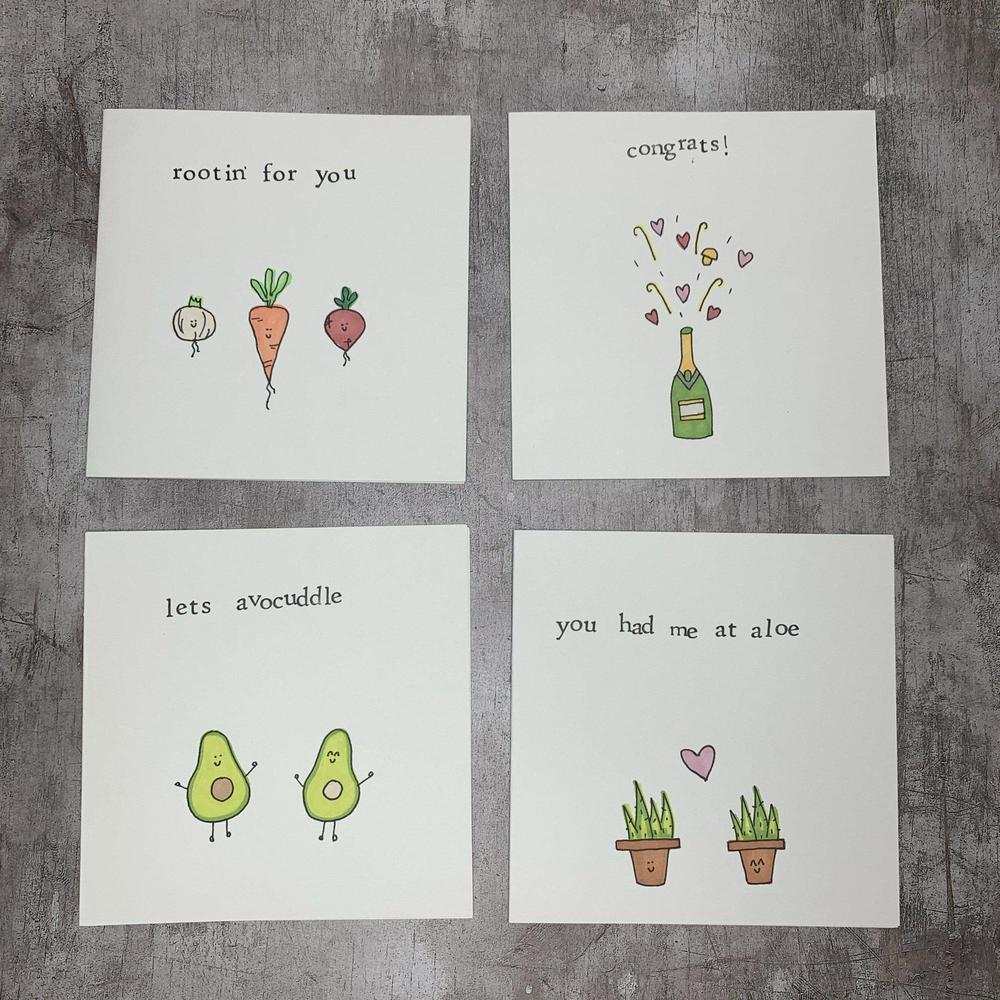 rootin' for you
congrats!
lets avocuddle
you had me at aloe